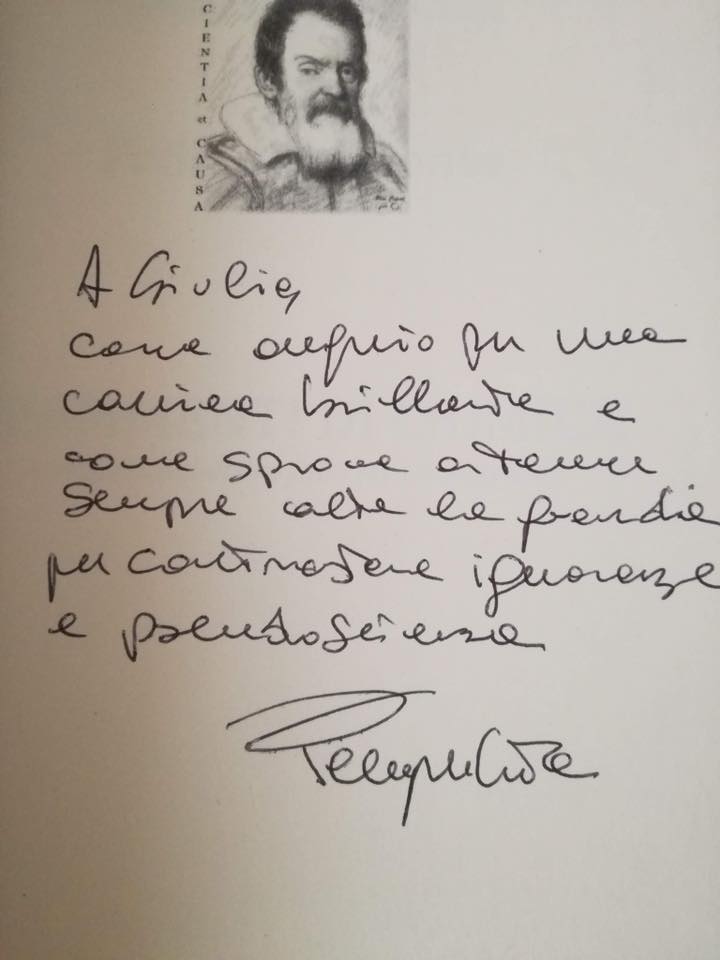 CIENTIA et CAUSA
A Giulia
come augurio per una
carriera brillante e
come sprone a tenere
sempre alta la guardia
per contrastare ignoranza
e pseudoscienza